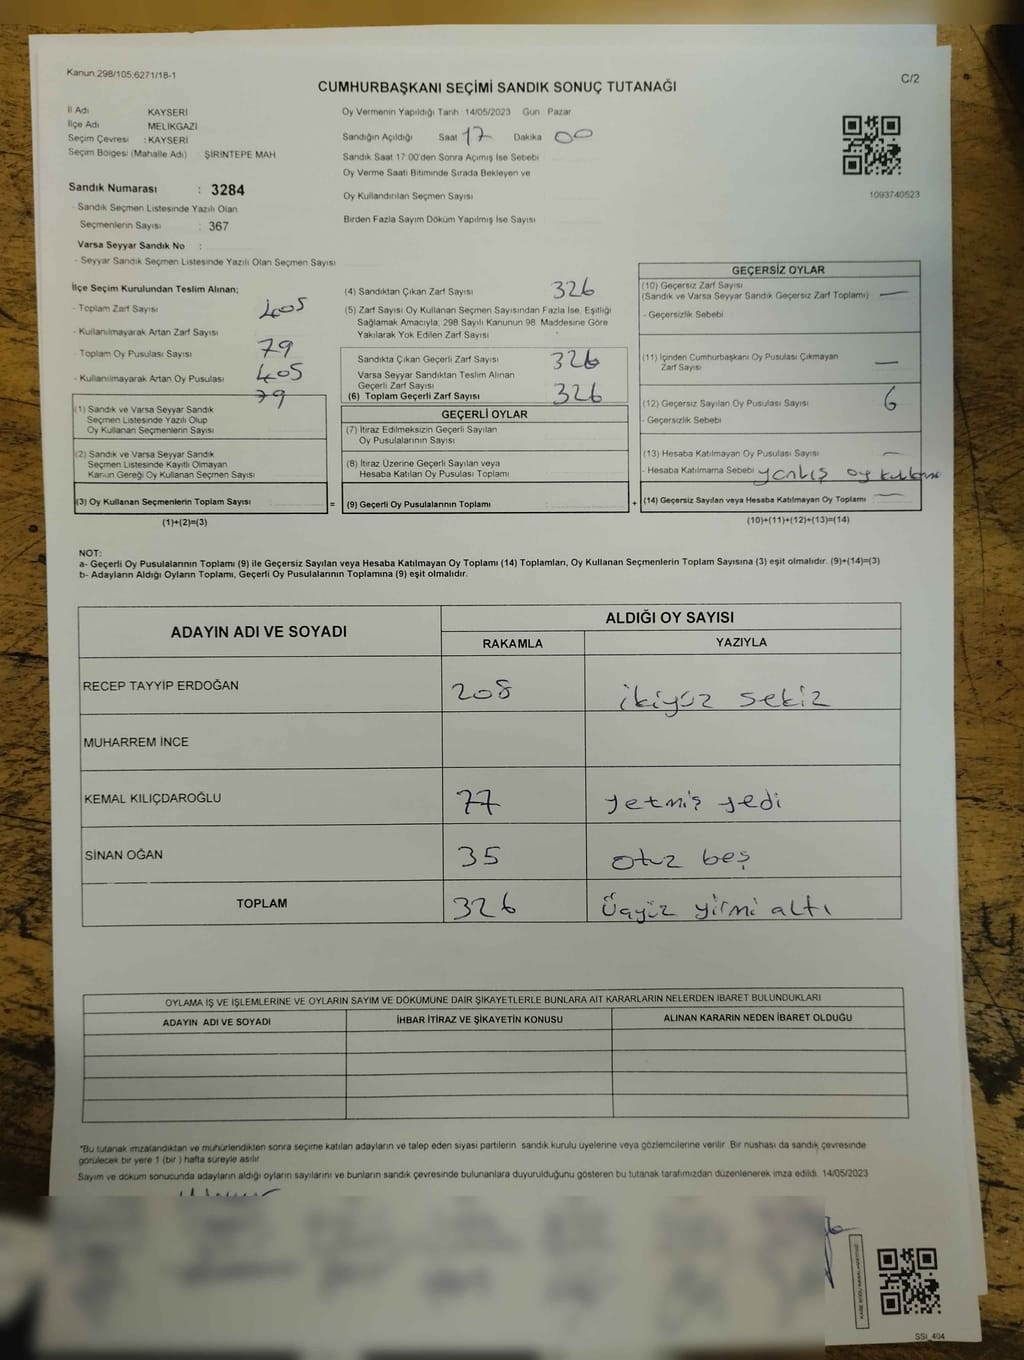 Kanun:298/105,6271/18-1
C/2
CUMHURBAŞKANI SEÇİMİ SANDIK SONUÇ TUTANAĞI
İl Adı KAYSERİ
İlçe Adı MELİKGAZİ
Seçim Çevresi : KAYSERİ
Seçim Bölgesi (Mahalle Adı) ŞİRİNTEPE MAH
Sandık Numarası : 3284
- Sandık Seçmen Listesinde Yazılı Olan
Seçmenlerin Sayısı : 367
Varsa Seyyar Sandık No :
- Seyyar Sandık Seçmen Listesinde Yazılı Olan Seçmen Sayısı
Oy Vermenin Yapıldığı Tarih 14/05/2023 Gün Pazar
Sandığın Açıldığı Saat 17 Dakika 00
Sandık Saat 17:00'den Sonra Açılmış İse Sebebi
Oy Verme Saati Bitiminde Sırada Bekleyen ve
Oy Kullandırılan Seçmen Sayısı
Birden Fazla Sayım Döküm Yapılmış İse Sayısı
1093740523
İlçe Seçim Kurulundan Teslim Alınan;
- Toplam Zarf Sayısı 405
- Kullanılmayarak Artan Zarf Sayısı 79
- Toplam Oy Pusulası Sayısı 405
- Kullanılmayarak Artan Oy Pusulası 79
(1) Sandık ve Varsa Seyyar Sandık
Seçmen Listesinde Yazılı Olup
Oy Kullanan Seçmenlerin Sayısı
(2) Sandık ve Varsa Seyyar Sandık
Seçmen Listesinde Kayıtlı Olmayan
Kanun Gereği Oy Kullanan Seçmen Sayısı
(3) Oy Kullanan Seçmenlerin Toplam Sayısı =
(1)+(2)=(3)
(4) Sandıktan Çıkan Zarf Sayısı 326
(5) Zarf Sayısı Oy Kullanan Seçmen Sayısından Fazla İse, Eşitliği
Sağlamak Amacıyla, 298 Sayılı Kanunun 98. Maddesine Göre
Yakılarak Yok Edilen Zarf Sayısı
Sandıkta Çıkan Geçerli Zarf Sayısı 326
Varsa Seyyar Sandıktan Teslim Alınan
Geçerli Zarf Sayısı
(6) Toplam Geçerli Zarf Sayısı 326
GEÇERLİ OYLAR
(7) İtiraz Edilmeksizin Geçerli Sayılan
Oy Pusulalarının Sayısı
(8) İtiraz Üzerine Geçerli Sayılan veya
Hesaba Katılan Oy Pusulası Toplamı
(9) Geçerli Oy Pusulalarının Toplamı +
GEÇERSİZ OYLAR
(10) Geçersiz Zarf Sayısı
(Sandık ve Varsa Seyyar Sandık Geçersiz Zarf Toplamı) —
- Geçersizlik Sebebi
(11) İçinden Cumhurbaşkanı Oy Pusulası Çıkmayan
Zarf Sayısı —
(12) Geçersiz Sayılan Oy Pusulası Sayısı 6
- Geçersizlik Sebebi
(13) Hesaba Katılmayan Oy Pusulası Sayısı —
- Hesaba Katılmama Sebebi yanlış oy
(14) Geçersiz Sayılan veya Hesaba Katılmayan Oy Toplamı —
(10)+(11)+(12)+(13)=(14)
NOT:
a- Geçerli Oy Pusulalarının Toplamı (9) ile Geçersiz Sayılan veya Hesaba Katılmayan Oy Toplamı (14) Toplamları, Oy Kullanan Seçmenlerin Toplam Sayısına (3) eşit olmalıdır. (9)+(14)=(3)
b- Adayların Aldığı Oyların Toplamı, Geçerli Oy Pusulalarının Toplamına (9) eşit olmalıdır.
ADAYIN ADI VE SOYADI ALDIĞI OY SAYISI
RAKAMLA YAZIYLA
RECEP TAYYİP ERDOĞAN 208 ikiyüz sekiz
MUHARREM İNCE
KEMAL KILIÇDAROĞLU 77 yetmiş yedi
SİNAN OĞAN 35 otuz beş
TOPLAM 326 Üçyüz yirmi altı
OYLAMA İŞ VE İŞLEMLERİNE VE OYLARIN SAYIM VE DÖKÜMÜNE DAİR ŞİKAYETLERLE BUNLARA AİT KARARLARIN NELERDEN İBARET BULUNDUKLARI
ADAYIN ADI VE SOYADI İHBAR İTİRAZ VE ŞİKAYETİN KONUSU ALINAN KARARIN NEDEN İBARET OLDUĞU
*Bu tutanak imzalandıktan ve mühürlendikten sonra seçime katılan adayların ve talep eden siyasi partilerin sandık kurulu üyelerine veya gözlemcilerine verilir. Bir nüshası da sandık çevresinde
görülecek bir yere 1 (bir ) hafta süreyle asılır.
Sayım ve döküm sonucunda adayların aldığı oyların sayılarını ve bunların sandık çevresinde bulunanlara duyurulduğunu gösteren bu tutanak tarafımızdan düzenlenerek imza edildi. 14/05/2023
SSI_404